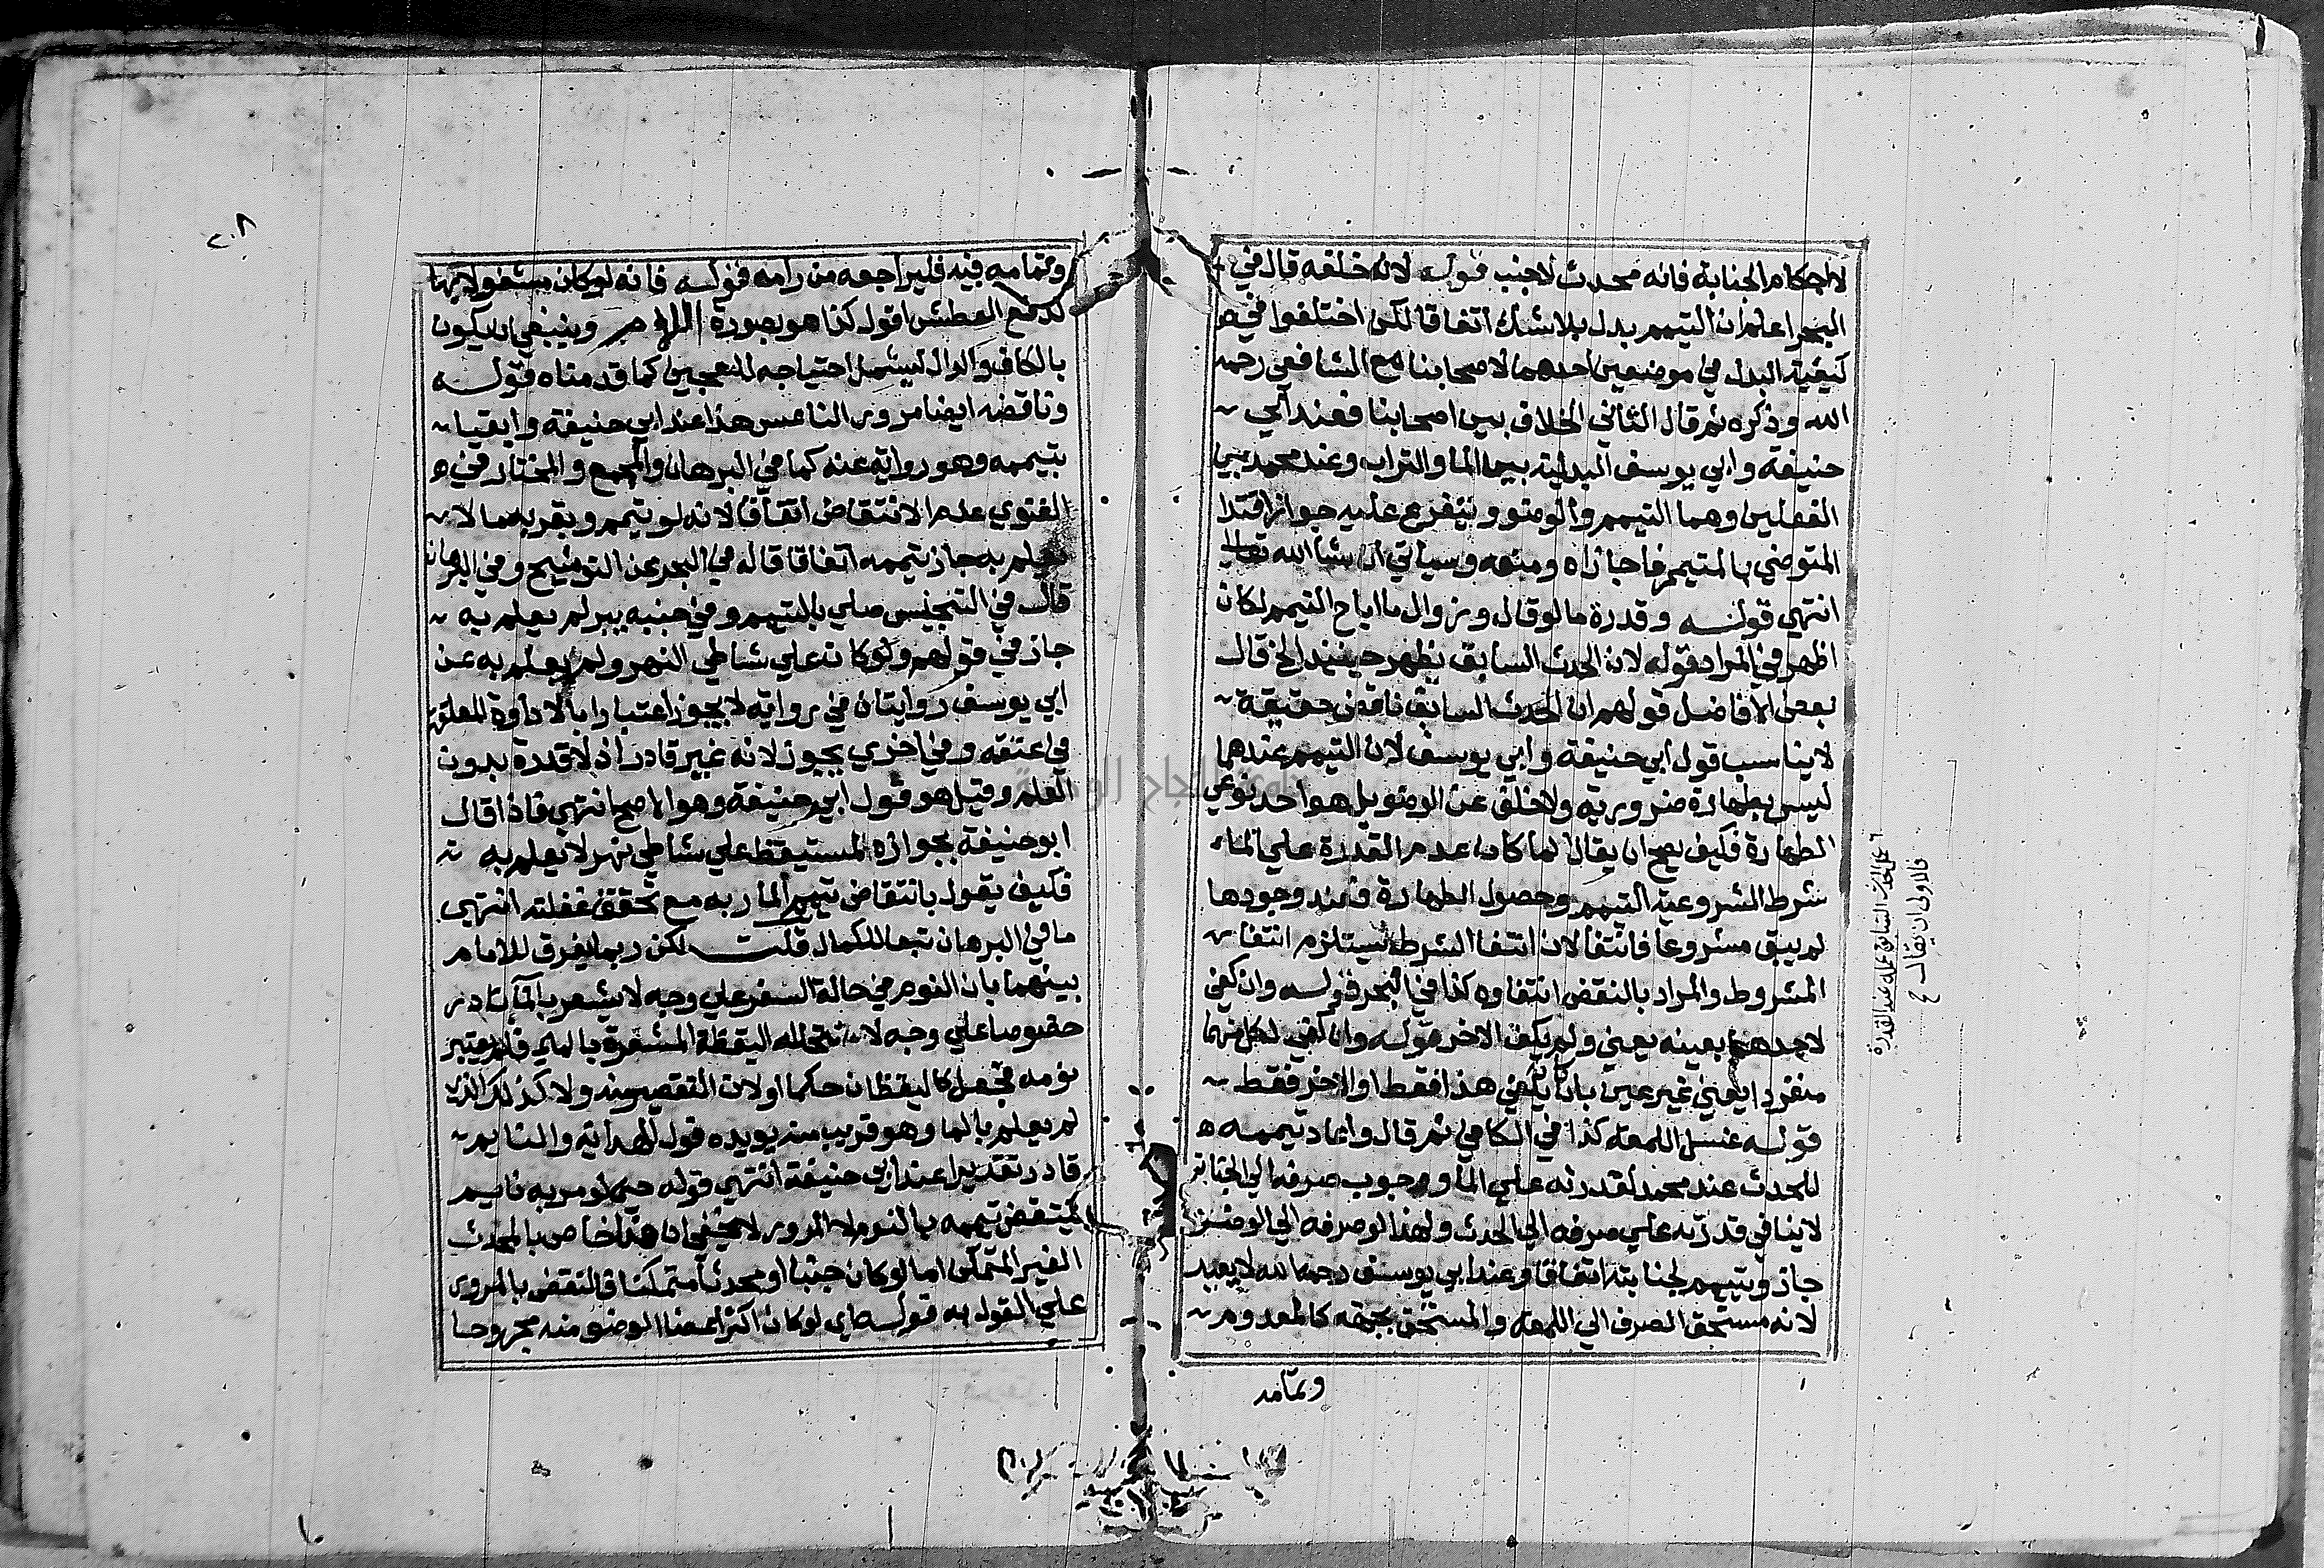 لااحكام الجنابة فانه محدث لاجنب قوله لانه خلفه قال في
البحر اعلم ان التيمم بدل بلاشك اتفاقا لكن اختلفوا في
كيفية البدل في موضعين احدهما لاصحابنا مع الشافعي رحمه
الله وذكره ثم قال الثاني الخلاف بين اصحابنا فعند ابي
حنيفة وابي يوسف البدلية بين الما والتراب وعند محمد بين
الفعلين وهما التيمم والوضو ويتفرع عليه جواز اقتدا
المتوضي بالمتيمم فاجازاه ومنعه وسياتي ان شا الله تعالي
انتهي قوله وقدرة ما لو قال وزوال ما اباح التيمم لكان
اظهر في المراد قوله لان الحدث السابق يظهر حينئذ الخ قال
بعض الافاضل قولهم ان الحدث السابق ناقض حقيقة
لايناسب قول ابي حنيفة وابي يوسف لان التيمم عندهما
ليس بطهارة ضرورية ولاخلف عن الوضو بل هو احد نوعي
الطهارة فكيف يصح ان يقال لما كان عدم القدرة علي الماء
شرط المشروعية التيمم وحصول الطهارة فعند وجودها
لم يبق مشروعا فانتفا لان انتفا الشرط يستلزم انتفا
المشروط والمراد بالنقض انتفاوه كذا في البحر قوله وان كفي
لاحدهما بعينه يعني ولم يكف الاخر قوله وان كفي لكل منهما
منفردا يعني غير عين بان يكفي هذا فقط او الاخر فقط
قوله غسل اللمعة كذا في الكافي ثم قال واعاد تيممه
للحدث عند محمد لقدرته علي الما ووجوب صرفه الي الجنابة
لاينافي قدرته علي صرفه الي الحدث ولهذا لو صرفه الي الوضو
جاز ويتيمم لجنابته اتفاقا وعند ابي يوسف رحمه الله لايعيد
لانه مستحق الصرف الي اللمعة والمستحق بجهة كالمعدوم
وتمامه
علي الحدث السابق عمله عند القدرة
فالاولي ان يقال
٢٠٨
وتمامه فيه فليراجعه من رامه قوله فانه لو كان مشغولا بها
لدفع العطش اقول كذا هو بصورة وينبغي ان يكون
بالكاف والدال ليشمل احتياجه للعجين كما قدمناه قوله
وناقضه ايضا مرور الناعس هذا عند ابي حنيفة وابقيا
بتيممه وهو رواية عنه كما في البرهان والمجمع والمختار في
الفتوي عدم الانتقاض اتفاقا لانه لو تيمم وبقربه ما لا
يعلم به جاز تيممه اتفاقا قاله في البحر عن التوشيح وفي البرهان
قال في التجنيس صلي بالتيمم وفي جنبه بير لم يعلم به
جاز في قولهم ولو كان علي شاطي النهر ولم يعلم به عن
ابي يوسف روايتان في رواية لايجوز اعتبارا بالاداوة المعلقة
في عنقه وفي اخري يجوز لانه غير قادر اذ لا قدرة بدون
العلم وقيل هو قول ابي حنيفة وهو الاصح انتهي فاذا قال
ابو حنيفة بجوازه لمستيقظ علي شاطي نهر لايعلم به
فكيف يقول بانتقاض تيمم المار به مع تحقق غفلته انتهي
ما في البرهان تبعا للكمال قلت لكن ربما يفرق للامام
بينهما بان النوم في حالة السفر علي وجه لايشعر بالما نادر
خصوصا علي وجه لا تتخلله اليقظة المشعرة بالما فلم يعتبر
نومه فجعل كاليقظان حكما اولان التقصير منه ولا كذلك الذي
لم يعلم بالما وهو قريب منه يويده قول الهداية والنايم
قادر تقديرا عند ابي حنيفة انتهي قوله حتي لو مر به نايم
ينتقض تيممه بالنوم لا المرور لايخفي ان هذا خاص بالمحدث
الغير المتمكن اما لو كان جنبا او محدثا متمكنا فالنقض بالمرور
علي القول به قوله اي لو كان اكثر اعضا الوضو منه مجروحا